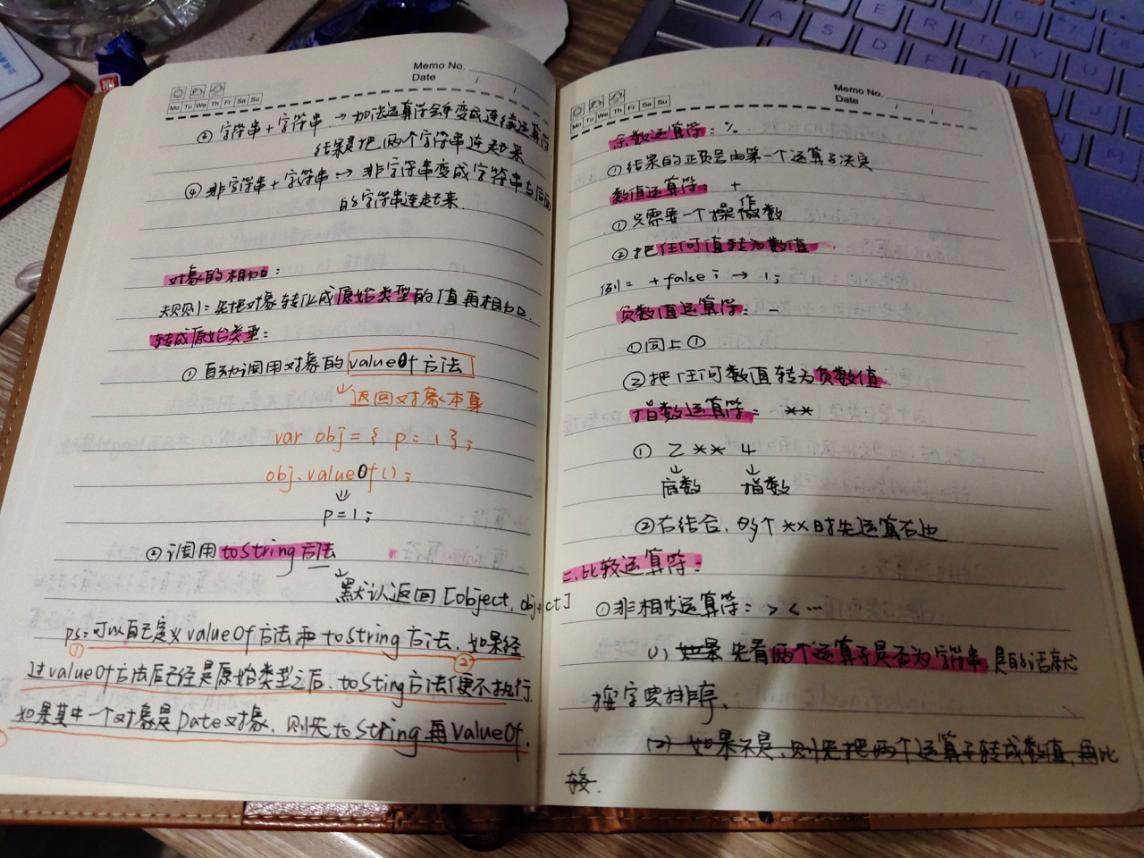 Memo No.
Date
Mo Tu We Th Fr Sa Su
字符串+字符串 → 加法运算符会变成连续运算符
结果是把两个字符串连起来
④ 非字符串+字符串 → 非字符串变成字符串与后面
的字符串连起来.
对象的相加:
规则: 先把对象转化成原始类型的值再相加.
转成原始类型:
① 自动调用对象的 valueOf 方法
返回对象本身
var obj = { p: 1 };
obj.valueOf();
p=1;
② 调用 toString 方法
默认返回 [object, object]
ps: 可以自己定义 valueOf 方法和 toString 方法, 如果经
① ②
过 valueOf 方法后已经是原始类型之后, toSting 方法便不执行.
如果其中一个对象是 Date 对象, 则先 toString 再 valueOf.
Memo No.
Date
Mo Tu We Th Fr Sa Su
余数运算符: %
① 结果的正负号由第一个运算子决定
数值运算符: +
① 只需要一个操作数
② 把任何值转为数值
例= + false; → 1;
负数值运算符: -
① 同上①
② 把任何数值转为负数值.
指数运算符: **
① 2 ** 4
底数 指数
② 右结合, 多个 ** 时先运算右边
二. 比较运算符:
① 非相等运算符: > < …
(1) 如果 先看两个运算子是否为字符串, 是的话就
按字典排序.
(2) 如果不是, 则先把两个运算子转成数值, 再比
较.